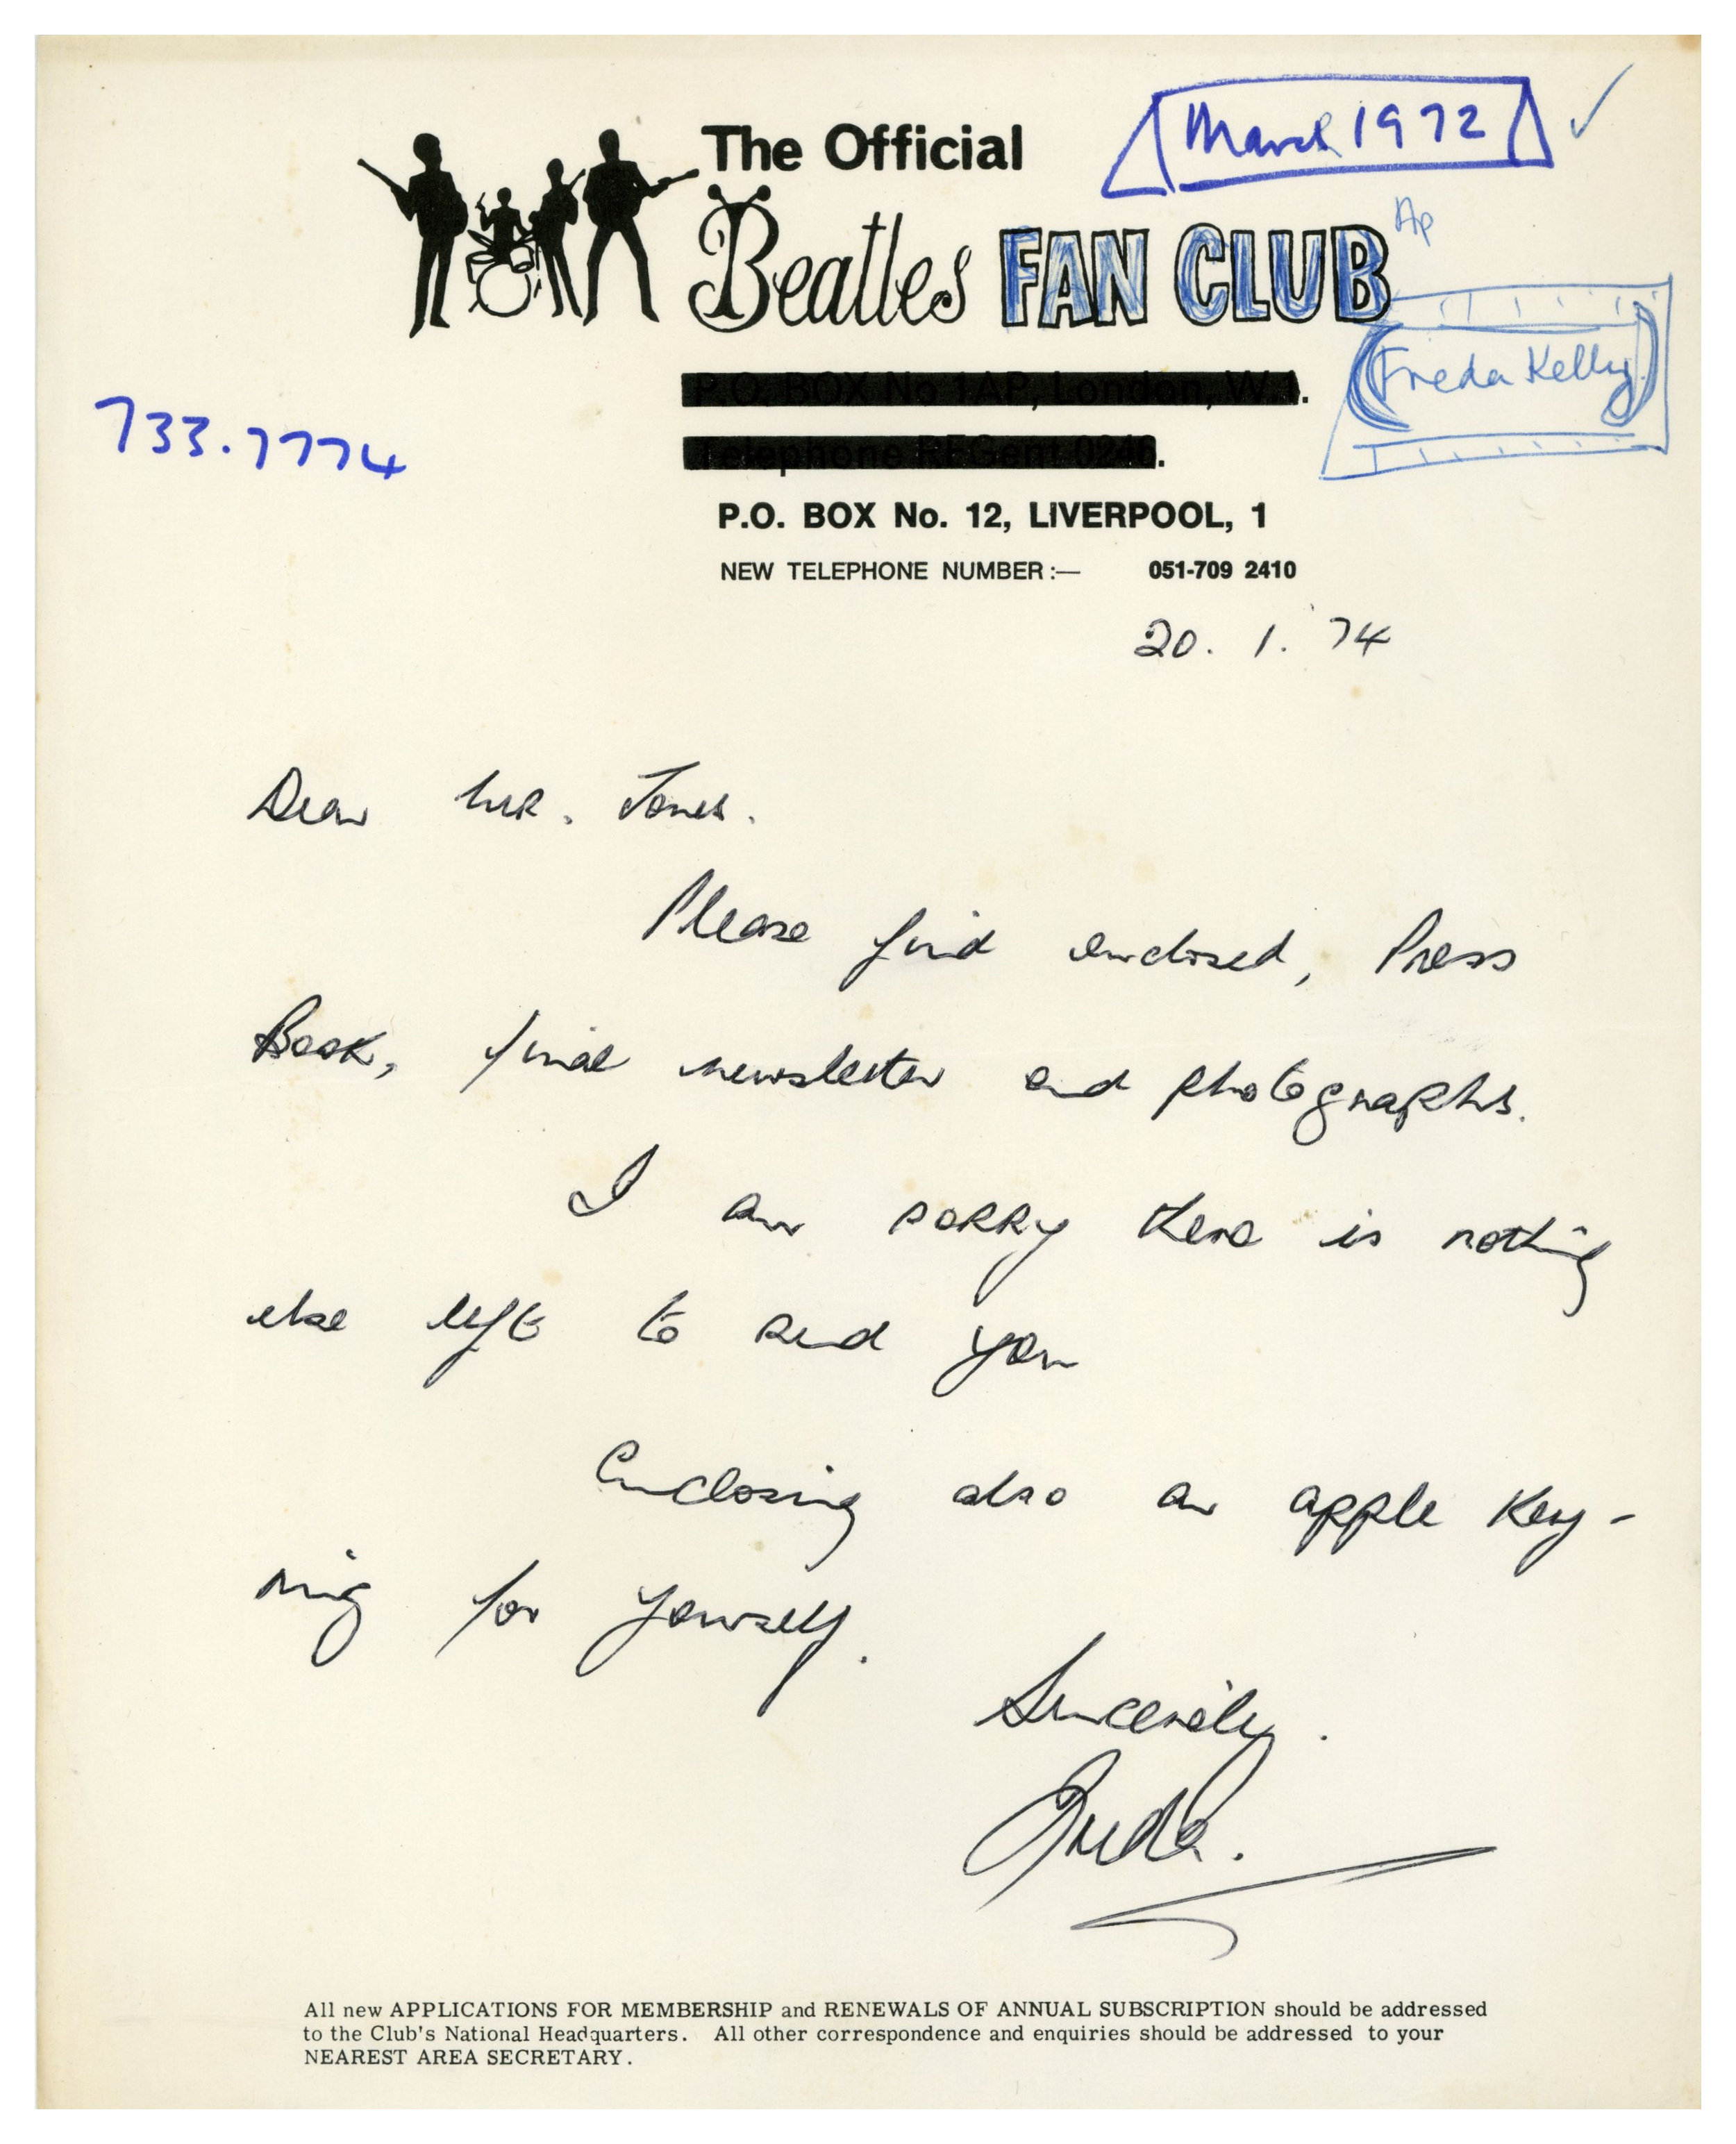 March 1972
The Official
Beatles FAN CLUB
Ap
Freda Kelly
P.O. BOX No 1AP, London, W.1.
733.7774
Telephone REGent 0246.
P.O. BOX No. 12, LIVERPOOL, 1
NEW TELEPHONE NUMBER:— 051-709 2410
20. 1. 74
Dear MR. Jones.
Please find enclosed, Press
Book, final newsletter and photographs.
I am sorry there is nothing
else left to send you
Enclosing also an apple key-
ring for yourself.
Sincerely.
Freda.
All new APPLICATIONS FOR MEMBERSHIP and RENEWALS OF ANNUAL SUBSCRIPTION should be addressed
to the Club's National Headquarters. All other correspondence and enquiries should be addressed to your
NEAREST AREA SECRETARY.